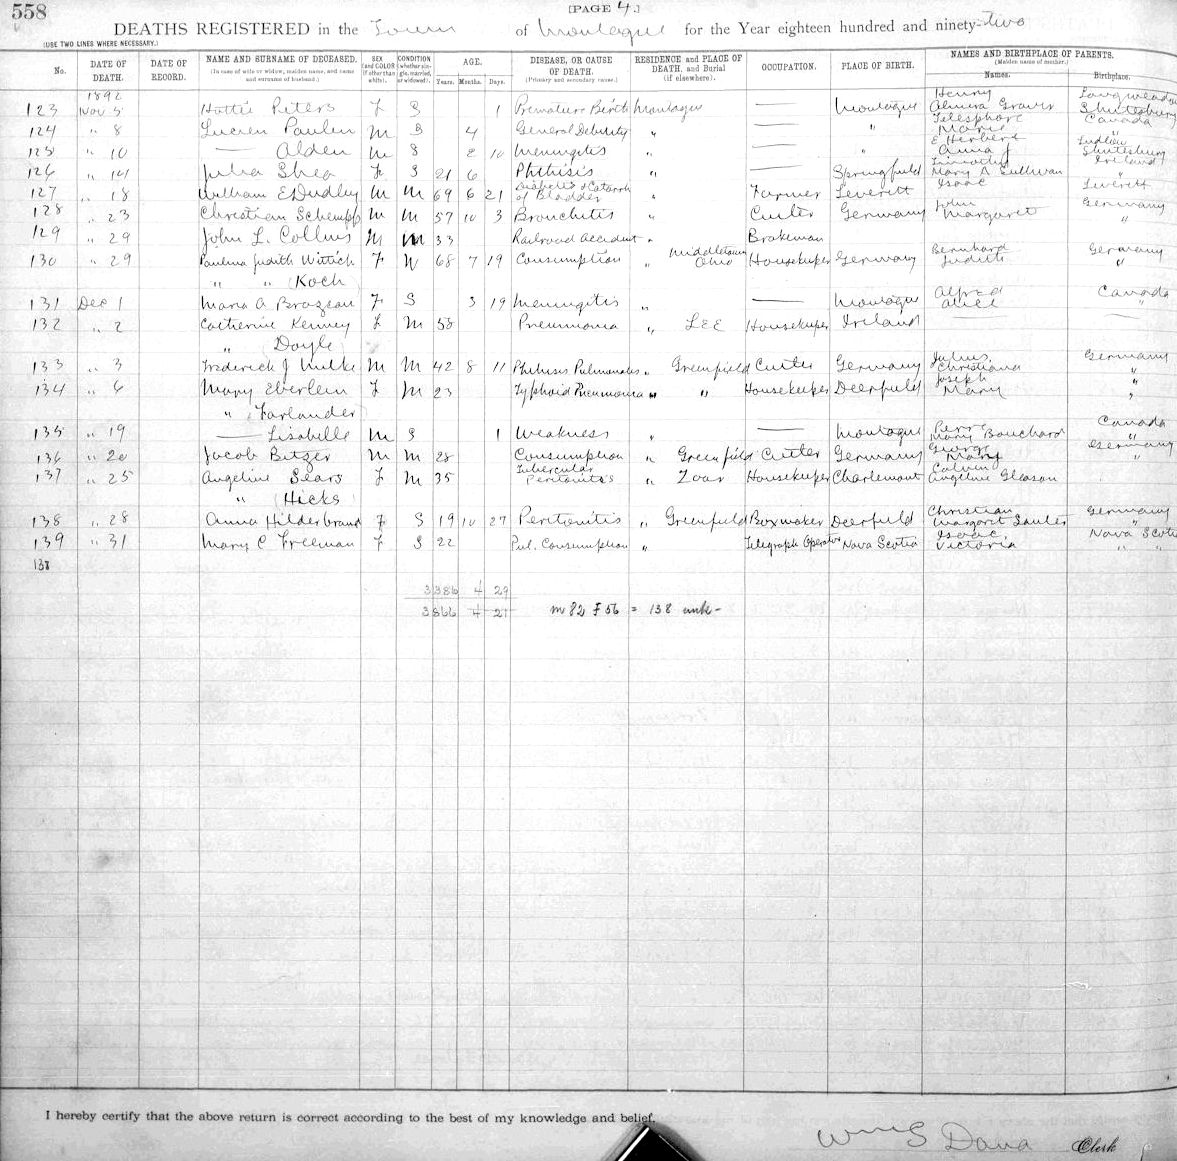 558
[PAGE 4.]
DEATHS REGISTERED in the Town of Montague for the Year eighteen hundred and ninety-two
(USE TWO LINES WHERE NECESSARY.)
No. DATE OF DEATH. DATE OF RECORD. NAME AND SURNAME OF DECEASED. (In case of wife or widow, maiden name, and name and surname of husband.) SEX (and COLOR if other than white). CONDITION (whether single, married, or widowed). AGE. Years. Months. Days. DISEASE, OR CAUSE OF DEATH. (Primary and secondary cause.) RESIDENCE and PLACE OF DEATH, and Burial (if elsewhere). OCCUPATION. PLACE OF BIRTH. NAMES AND BIRTHPLACE OF PARENTS. (Maiden name of mother.) Names. Birthplace.
1892 Henry Longmeadow
123 Nov 5 Hattie Peters F S 1 Premature Birth Montague — Montague Almira Graves Shutesbury
Telesphore Canada
124 " 8 Lucien Paulin M S 4 General Debility " — " Marie "
E Herbert Ludlow
125 " 10 — Alden M S 2 10 Meningitis " — " Anna J Shutesbury
Timothy Ireland
126 " 14 Julia Shea F S 21 6 Phthisis " — Springfield Mary A Sullivan "
127 " 18 William E Dudley M M 69 6 21 Diabetes & Catarrh of Bladder " Farmer Leverett Isaac Leverett
John Germany
128 " 23 Christian Schempp M M 57 10 3 Bronchitis " Cutter Germany Margaret "
129 " 29 John L. Collins M M 33 Railroad Accident " Brakeman
Middletown Bernhard Germany
130 " 29 Paulina Judith Wittich F W 68 7 19 Consumption " Ohio Housekeeper Germany Judith "
" " (Koch)
Alfred Canada
131 Dec 1 Maria A Brazeau F S 3 19 Meningitis " — Montague Alice "
132 " 2 Catherine Kenney F M 58 Pneumonia " LEE Housekeeper Ireland — —
" (Doyle)
Julius Germany
133 " 3 Frederick J Wilke M M 42 8 11 Phthisis Pulmonalis " Greenfield Cutter Germany Christiana "
Joseph "
134 " 6 Mary Eberlein F M 23 Typhoid Pneumonia " " Housekeeper Deerfield Mary "
" (Farlander)
Pierre Canada
135 " 19 — Lisabille M S 1 Weakness " — Montague Mary Bouchard "
George Germany
136 " 20 Jacob Bitzer M M 28 Consumption " Greenfield Cutter Germany Mary "
Calvin
137 " 25 Angeline Sears F M 35 Tubercular Peritonitis " Zoar Housekeeper Charlemont Angeline Gleason
" (Hicks)
Christian Germany
138 " 28 Anna Hilderbrand F S 19 10 27 Peritonitis " Greenfield Boxmaker Deerfield Margaret Sauter "
Isaac Nova Scotia
139 " 31 Mary C Freeman F S 22 Pul. Consumption " Telegraph Operator Nova Scotia Victoria " "
138
3386 4 29
3866 4 27 M 82 F 56 = 138 unk-
I hereby certify that the above return is correct according to the best of my knowledge and belief.
Wm S Dana Clerk